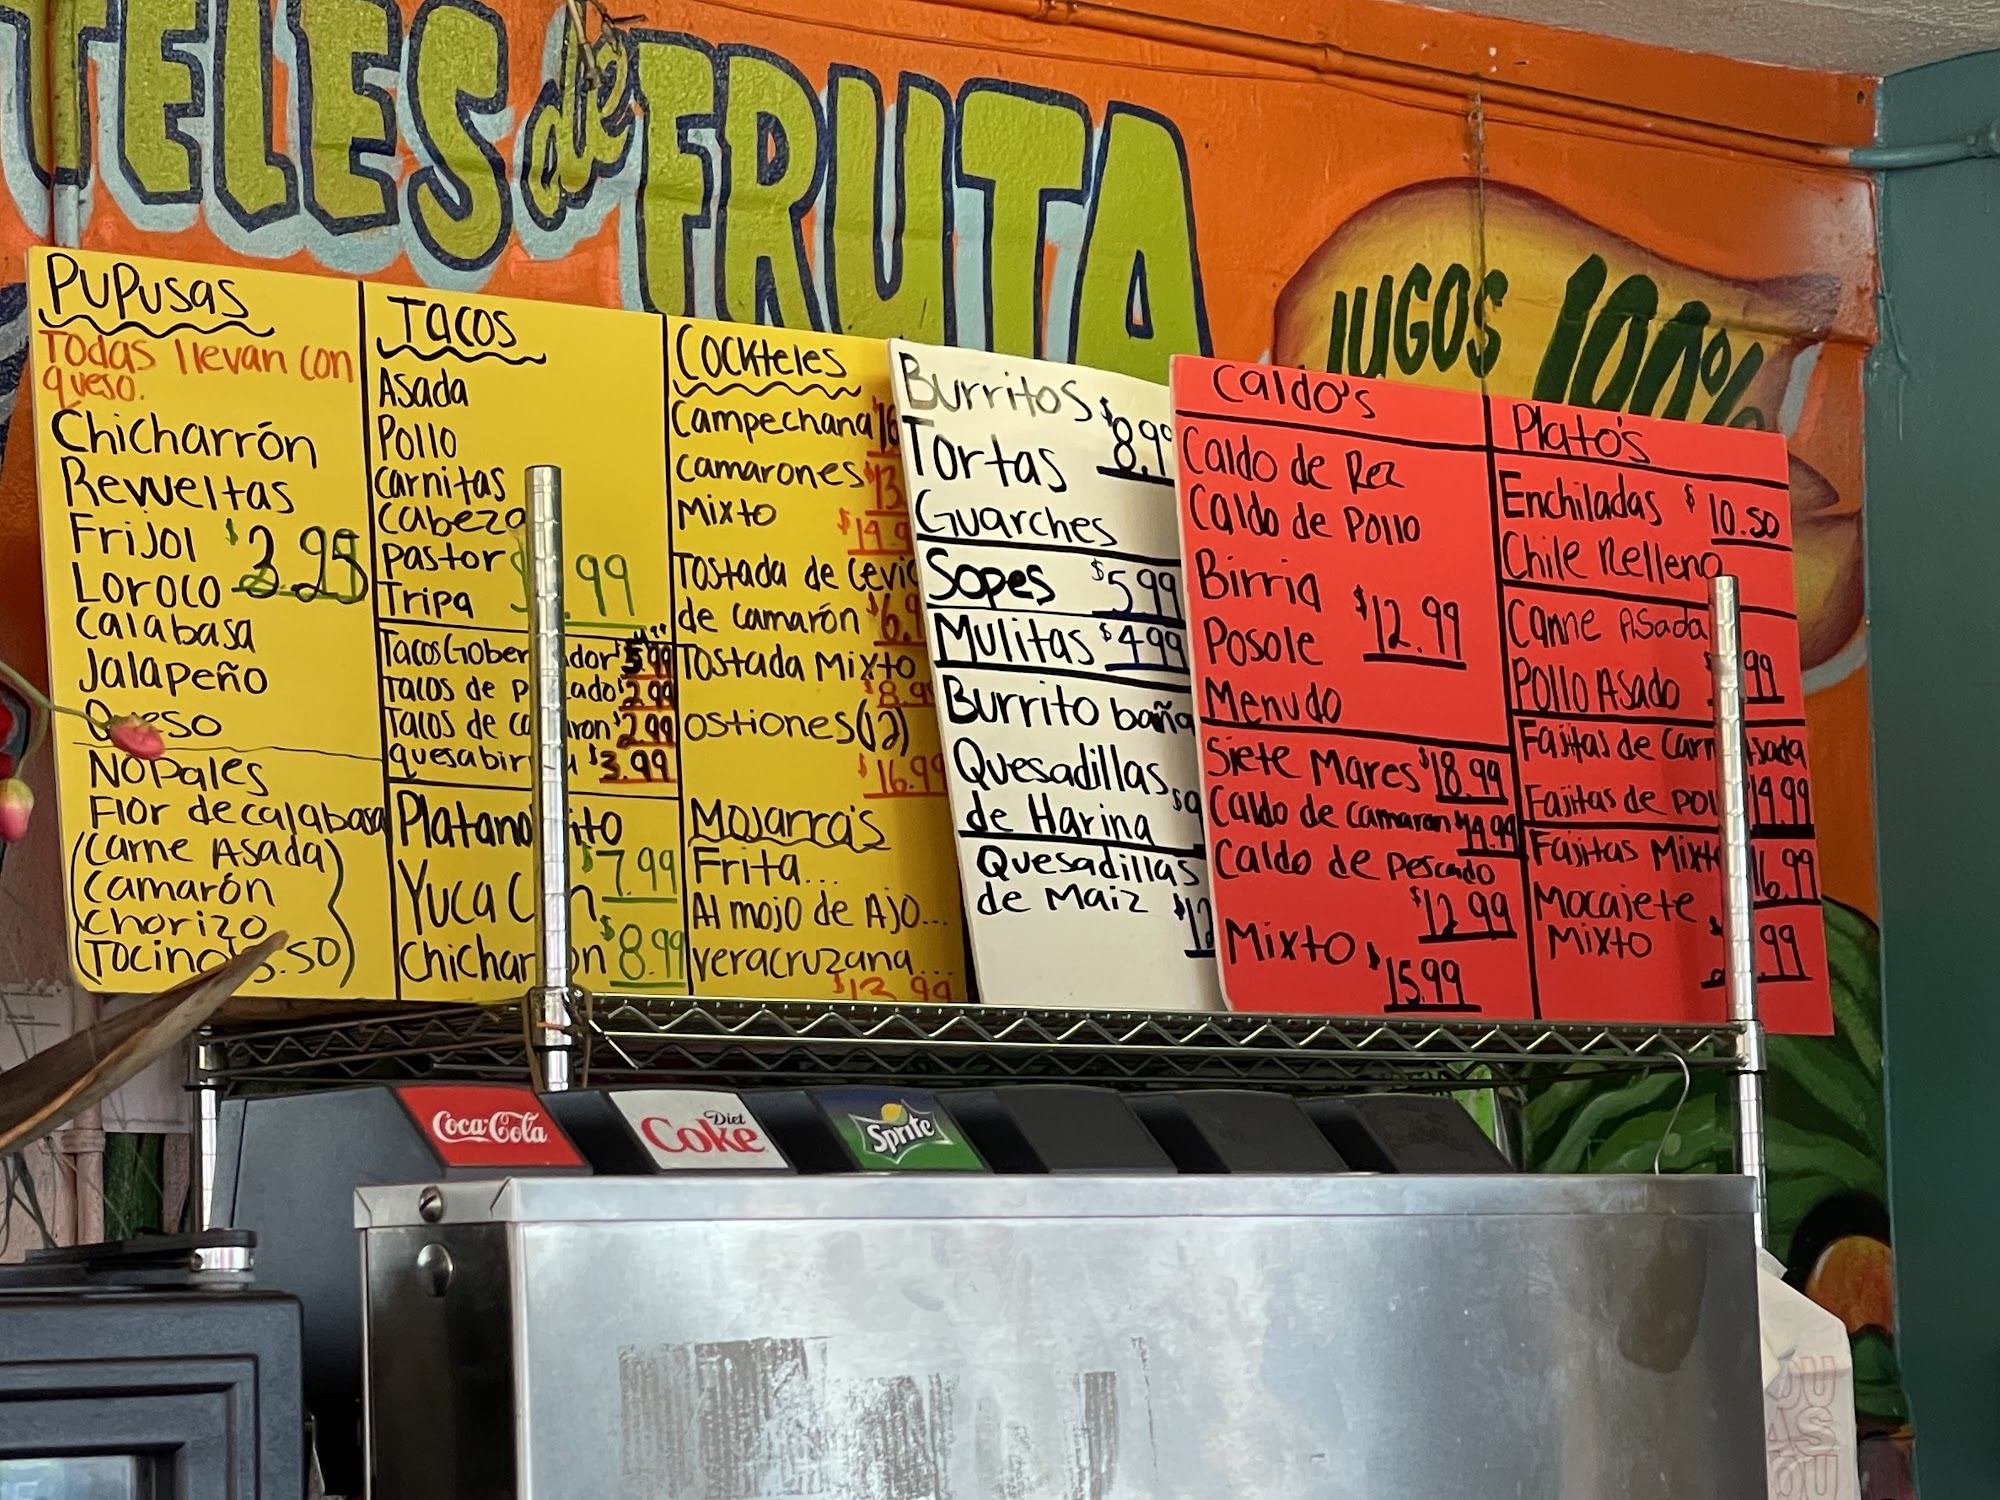 TELES de FRUTA
JUGOS 100%
PUPUSAS
Todas llevan con
queso.
Chicharrón
Revueltas
Frijol $3.25
Loroco
Calabasa
Jalapeño
Queso
Nopales
Flor de calabasa
(Carne Asada)
Camarón
Chorizo
(Tocino) .50
TACOS
Asada
Pollo
Carnitas
Cabeza
Pastor
Tripa .99
Tacos Gober dor
Tacos de p cado $2.99
Tacos de ca ron $2.99
quesabirr $3.99
Platano ito
$7.99
Yuca C n
Chichar on $8.99
COCKteles
Campechana $16
Camarones $13
Mixto $14.9
Tostada de Cevic
de camarón $6.9
Tostada Mixto
$8.99
ostiones (12)
$16.99
Mojarra's
Frita...
Al mojo de Ajo...
Veracruzana...
$13.99
Burritos $8.99
Tortas
Guarches
Sopes $5.99
Mulitas $4.99
Burrito baña
Quesadillas
de Harina $9
Quesadillas
de Maiz $12
Caldo's
Caldo de Rez
Caldo de Pollo
Birria
$12.99
Posole
Menudo
Siete Mares $18.99
Caldo de camaron $14.99
Caldo de Pescado
$12.99
Mixto $15.99
Plato's
Enchiladas $10.50
Chile Relleno
Carne Asada
Pollo Asado .99
Fajitas de Carn Asada
Fajitas de pol 14.99
Fajitas Mixt 16.99
Mocajete
Mixto $ .99
Coca-Cola
Diet
Coke
Sprite